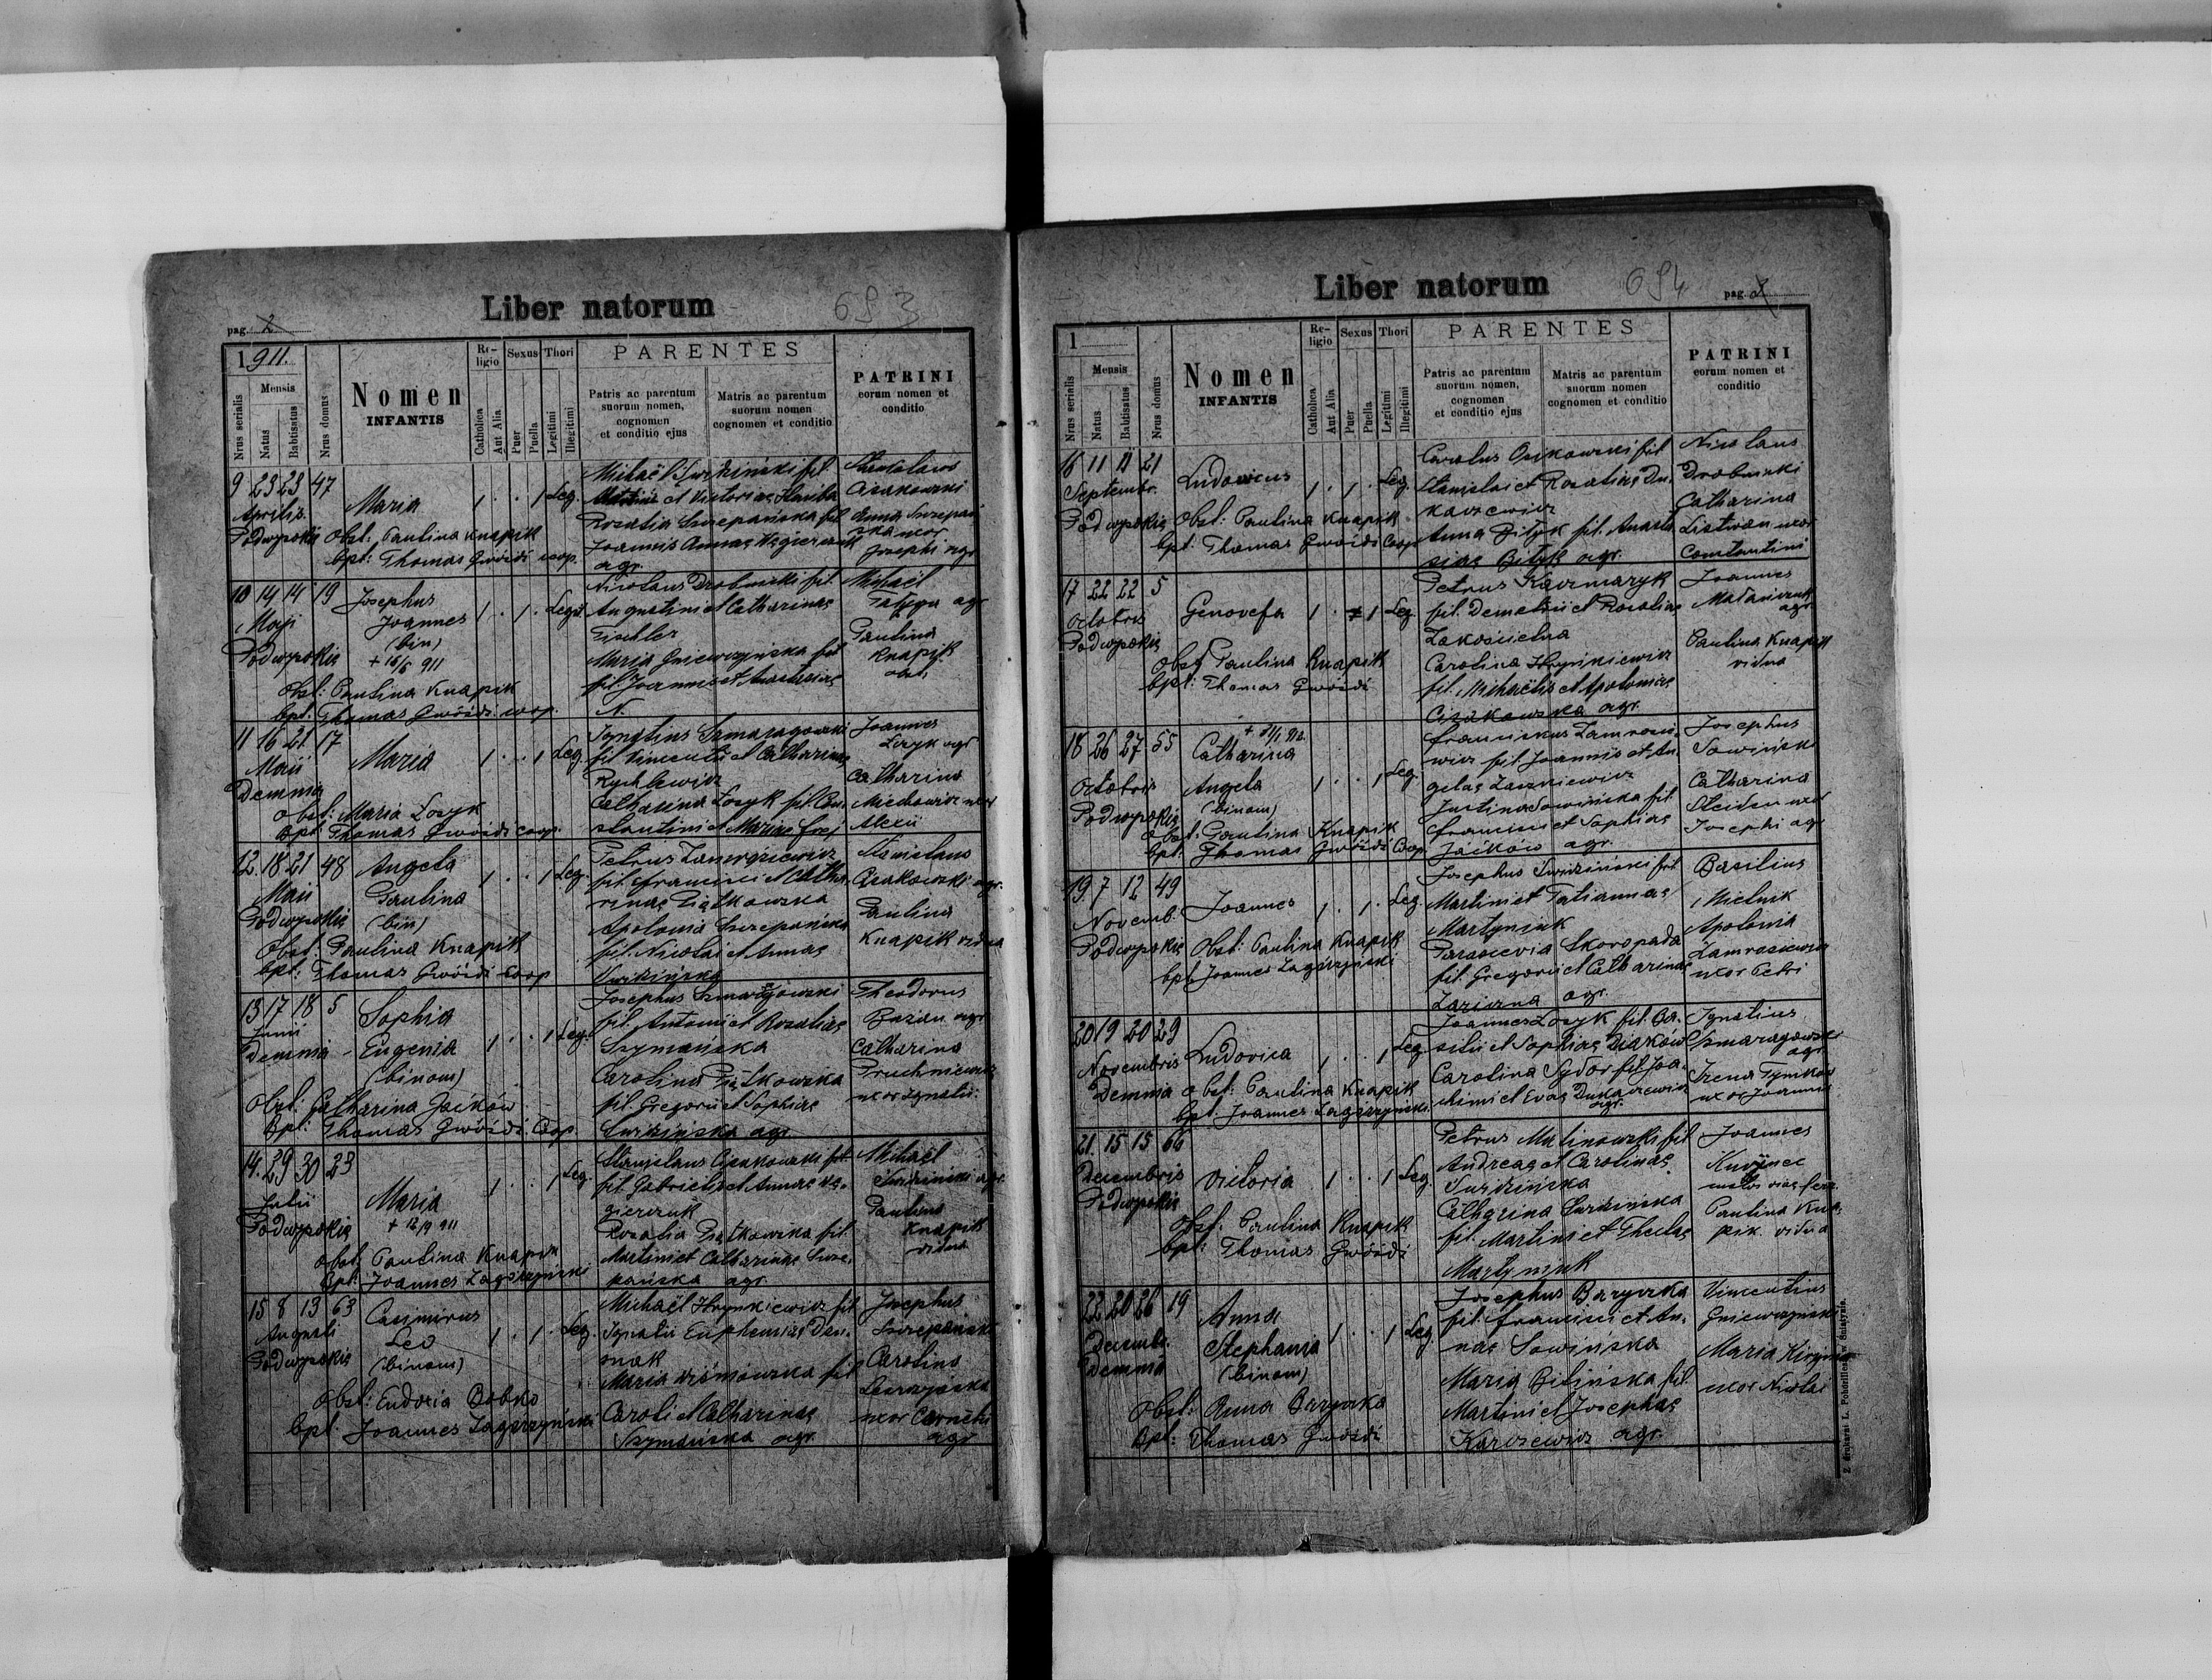 Liber natorum
693
pag. 2
1911.
Nrus serialis
Mensis
Natus
Babtisatus
Nrus domus
Nomen
INFANTIS
Religio
Catholica
Aut Alia
Sexus
Puer
Puella
Thori
Legitimi
Illegitimi
PARENTES
Patris ac parentum
suorum nomen,
cognomen
et conditio ejus
Matris ac parentum
suorum nomen
cognomen et conditio
PATRINI
eorum nomen et
conditio
9 23 23 47
Aprilis
Maria
1 . . 1 Leg.
Michaël Swiziński fil.
et Victoriae Haniba
Rosalia Szczepańska fil.
Joannis Annae Węgierczuk
agr.
Cizakowski
Anna Szczepań
ska uxor
Josephi agr
Obst: Paulina Knapik
bpt: Thomas Gwóźdź coop.
10 14 14 19
Maji
Josephus
Joannes
(bin)
+ 16/5 911
1 . 1 . Leg
Nicolaus Drobnicki fil.
Augustini et Catharinae
Fischler
Maria Gniewczyńska fil
fil. Joannis et Anastasiae
N.
Michaël
agr
Paulina
Knapik
obst.
Obst: Paulina Knapik
bpt: Thomas Gwóźdź coop.
11 16 21 17
Maii
Demnia
Maria
1 . . 1 Leg.
Ignatius Szmaragowski
fil Vincentii et Catharinae
Rychlewicz
Catharina Łosyk fil Con
stantini et Mariae Frej
Joannes
Łozyk agr
Catharina
Miechowicz uxor
Alexii
Obst: Maria Łosyk
Bpt: Thomas Gwóźdź coop.
12. 18 21 48
Maii
Angela
Paulina
(bin)
1 . . 1 Leg.
fil. Francisci et Catha
rinae Piątkowska
Apolonia Szczepańska
fil. Nicolai et Annae
Swizińska
Stanislaus
Cizakowski agr.
Paulina
Knapik vidua
Obst. Paulina Knapik
bpt: Thomas Gwóźdź coop
13 17 18 5
Junii
Demnia
Sophia
Eugenia
(binom)
1 . . 1 Leg.
Josephus Szmaragowski
fil. Antonii et Rosaliae
Szymańska
Carolina Piątkowska
fil. Gregorii et Sophiae
Swizińska agr.
Theodorus
Bazan agr
Catharina
Pruchniewicz
uxor Ignatii
Obst: Catharina Jaćków
Bpt: Thomas Gwóźdź Coop.
14. 29 30 23
Julii
Maria
+ 12/9 911
1 . . 1 Leg.
Stanislaus Cizakowski fil.
fil. Gabrielis et Annae Wę
gierczuk
Rosalia Piątkowska fil.
Martini et Catharinae Szcze
pańska agr.
Michaël
Swiziński agr.
Paulina
Knapik
vidua
Obst. Paulina Knapik
Bpt: Joannes Zagórzyński
15 8 13 63
Augusti
Casimirus
Leo
(binom)
1 . 1 . Leg.
Michaël Hrynkiewicz fil
Ignatii Euphemiae Dan
mak
Maria Wiśniowska fil
Caroli et Catharinae
Szymańska agr.
Josephus
Szczepański
Carolina
uxor Cornelii
agr
Obst: Eudoxia Bobko
bpt. Joannes Zagórzyński
Liber natorum
694
pag.
1
Nrus serialis
Mensis
Natus
Babtisatus
Nrus domus
Nomen
INFANTIS
Religio
Catholica
Aut Alia
Sexus
Puer
Puella
Thori
Legitimi
Illegitimi
PARENTES
Patris ac parentum
suorum nomen,
cognomen
et conditio ejus
Matris ac parentum
suorum nomen
cognomen et conditio
PATRINI
eorum nomen et
conditio
16 11 11 21
Septembr.
Ludovicus
1 . 1 . Leg.
Carolus Osikowski fil
Stanislai et Rosaliae Du
karzewicz
Anna Bityk fil. Anasta
siae Bityk agr.
Nicolaus
Drobnicki
Catharina
Listwan uxor
Constantini
Obst: Paulina Knapik
bpt. Thomas Gwóźdź Coop
17 22 22 5
Octobris
Genovefa
1 . 1 Leg.
Petrus Kaczmaryk
fil. Demetrii et Rosaliae
Carolina Hrynkiewicz
fil. Michaëlis et Apoloniae
Cizakowska agr.
Joannes
agr.
Paulina Knapik
vidua
Obst. Paulina Knapik
bpt: Thomas Gwóźdź
18 26 27 55
Octobris
Catharina
Angela
(binom)
1 . . 1 Leg.
Franciskus Zamrosie
wicz fil. Joannis et An
gelae
Justina Sowińska fil
Francisci et Sophiae
Jaćków agr.
Josephus
Sowiński
Catharina
uxor
Josephi agr
Obst: Paulina Knapik
bpt: Thomas Gwóźdź Coop.
19. 7 12 49
Novemb.
Joannes
1 . 1 . Leg.
Josephus Swiziński fil
Martini et Tatiannae
Martyniuk
Parascevia Skoropada
fil. Gregorii et Catharinae
agr.
Basilius
Mielnik
Apolonia
Zamrosiewicz
uxor Petri
Obst: Paulina Knapik
bpt Joannes Zagórzyński
20 19 20 29
Novembris
Demnia
Ludovica
1 . . 1 Leg.
Joannes Łosyk fil. Ba
silii et Sophiae Diaków
Carolina Sydor fil. Joa
chimi et Evae Dukarzewicz
agr.
Ignatius
Szmaragowski
agr
Irena Tymków
uxor Joannis
Obst: Paulina Knapik
bpt. Joannes Zagórzyński
21. 15 15 66
Decembris
Victoria
1 . . 1 Leg.
Petrus Malinowski fil
Andreae et Carolinae
Swizińska
Catharina Swizińska
fil. Martini et Theclae
Martyniuk
Joannes
Paulina Kna
pik vidua
Obst. Paulina Knapik
bpt: Thomas Gwóźdź
22 20 26 19
Decemb.
Demnia
Anna
Stephania
(binom)
1 . . 1 Leg.
Josephus Baryczka
fil. Francisci et An
nae Sowińska
Maria Bilińska fil.
Martini et Josephae
Karczewicz agr.
Vincentius
Gniewczyński
Maria
uxor Nicolai
Obst: Anna Baryczka
Bpt: Thomas Gwóźdź